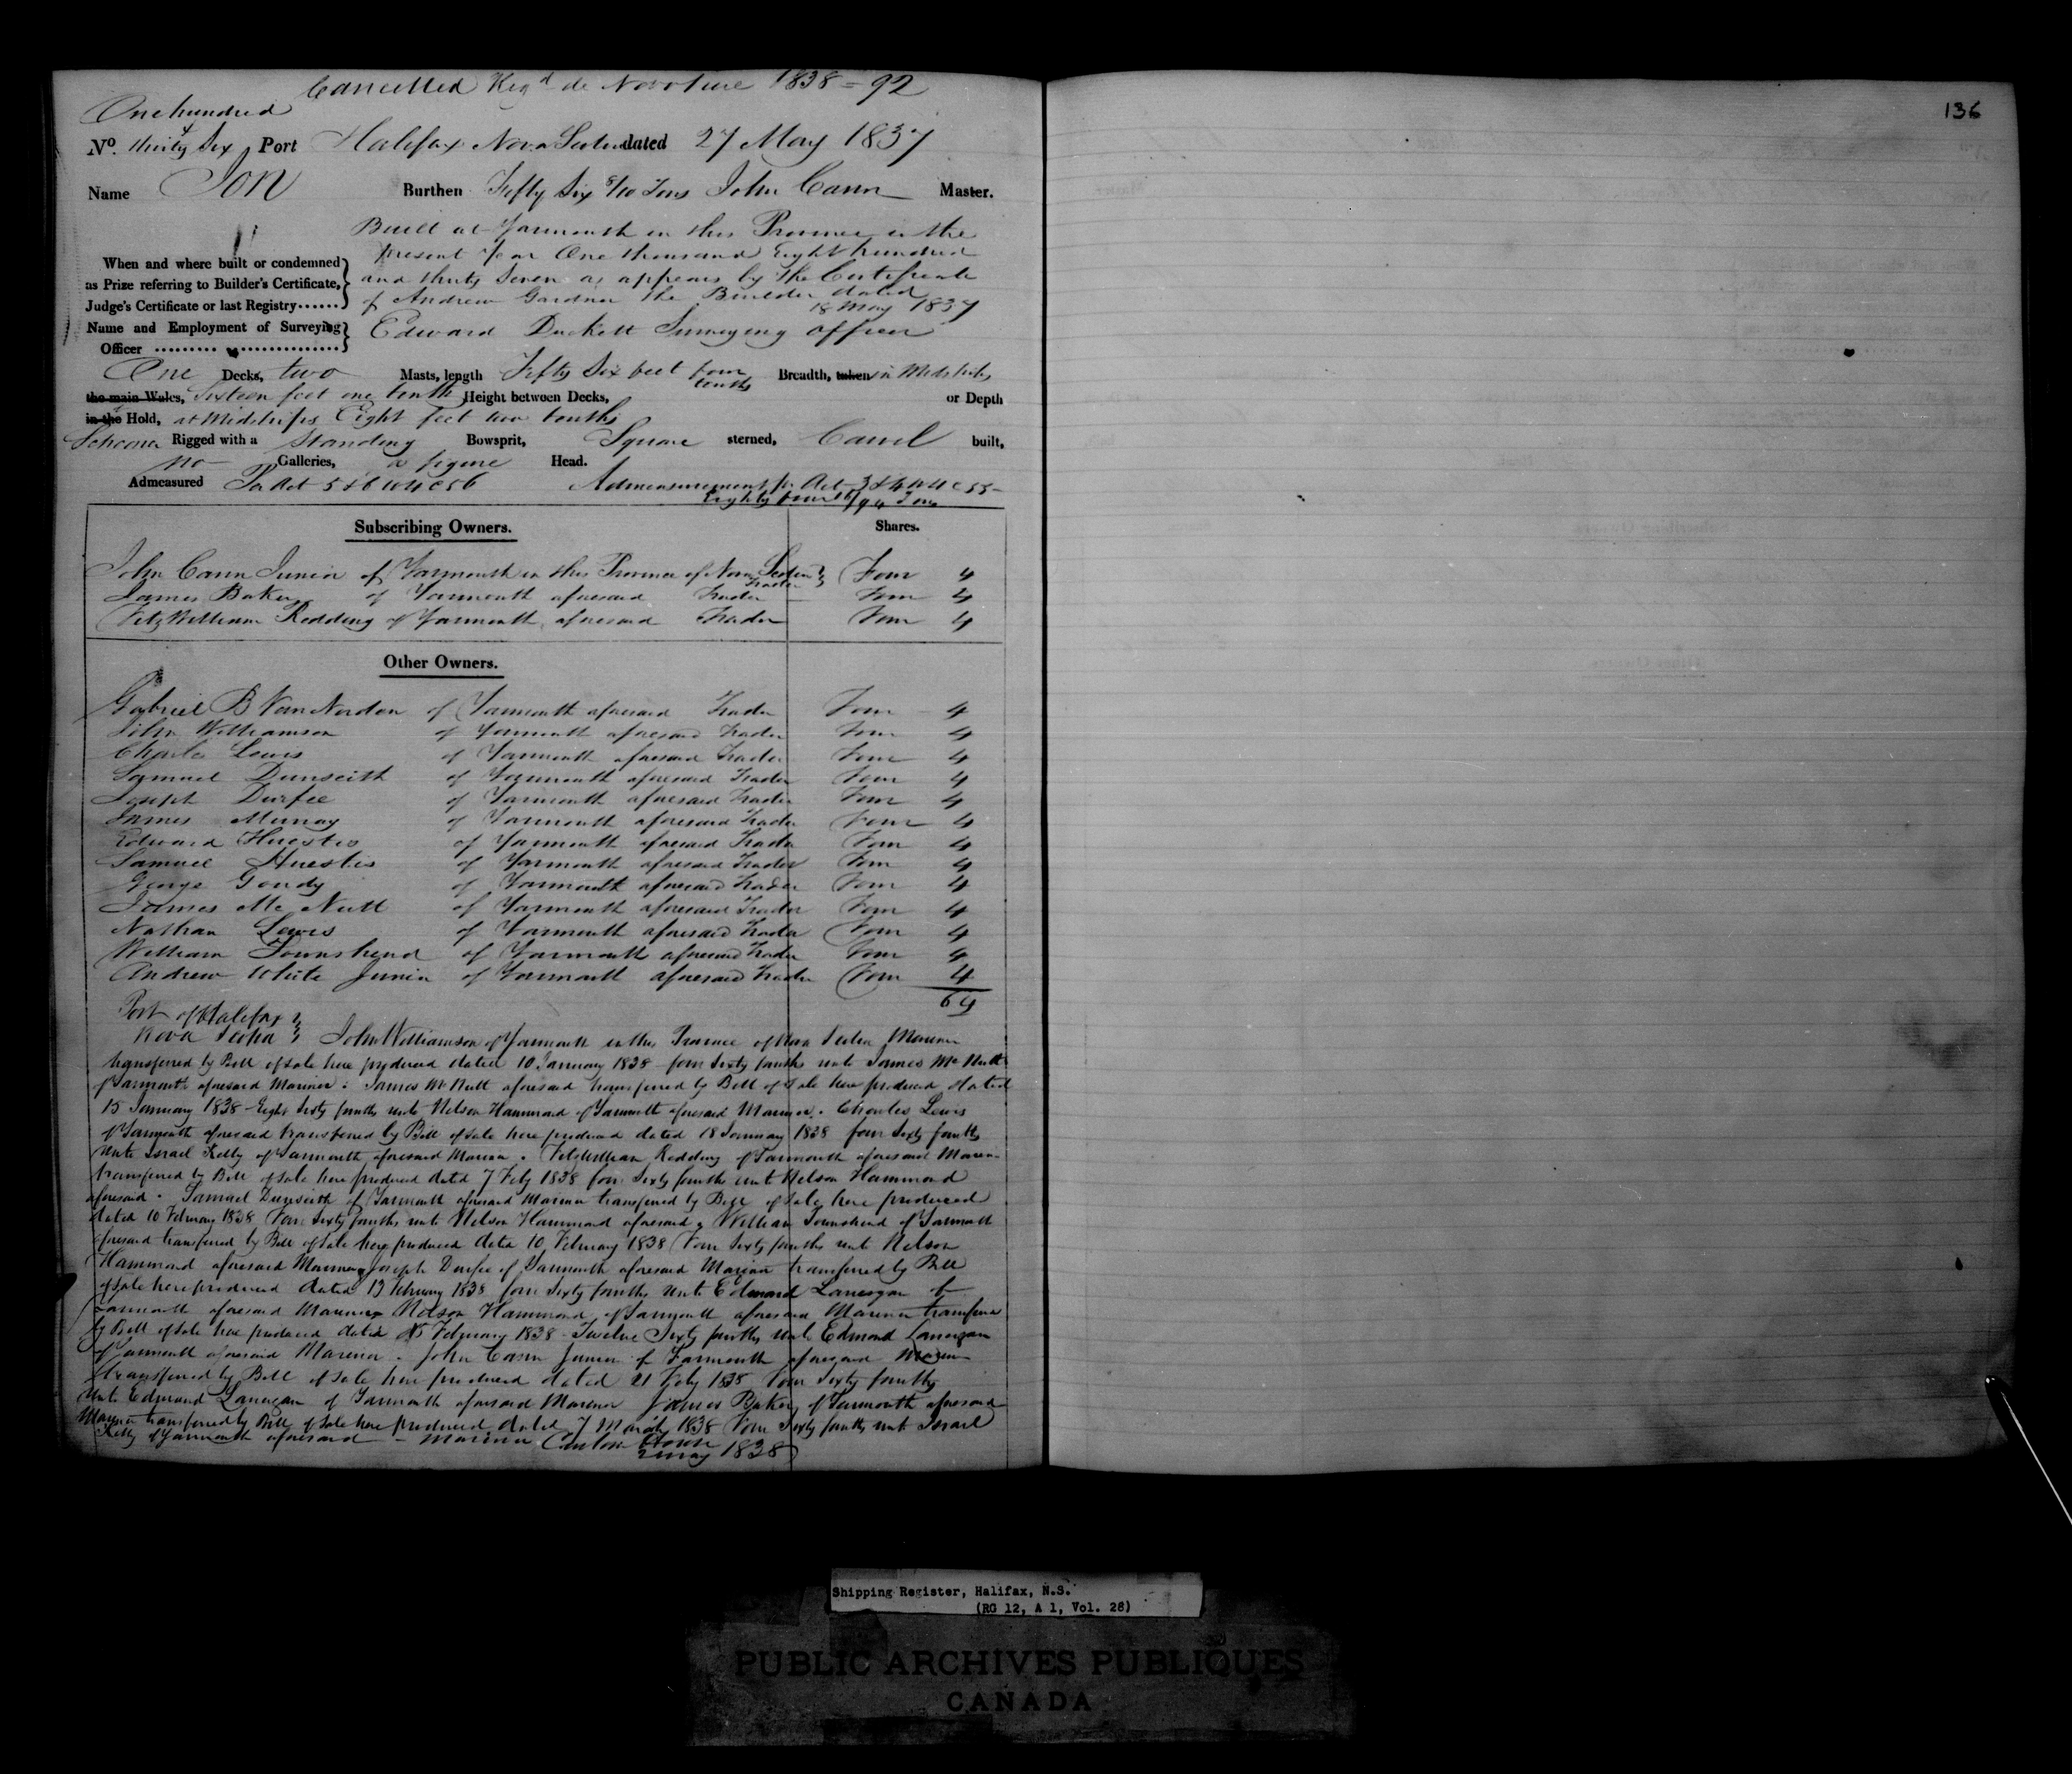 Cancelled Regd de Novo June 1838 = 92
One hundred
No. thirty Six Port Halifax Nova Scotia dated 27 May 1837
Name Ion Burthen Fifty Six 8/10 Tons John Cann Master.
Built at Yarmouth in this Province in the
present Year One thousand Eight hundred
When and where built or condemned
and thirty Seven as appears by the Certificate
as Prize referring to Builder's Certificate,
of Andrew Gardner the Builder dated
Judge's Certificate or last Registry......
18 May 1837
Name and Employment of Surveying
Edward Duckett Surveying officer
Officer
One Decks, two Masts, length Fifty Six feet four tenths Breadth, taken in Midships
the main Wales, Sixteen feet one tenth Height between Decks, or Depth
in the Hold, at Midships Eight feet two tenths
Schooner Rigged with a Standing Bowsprit, Square sterned, Carvel built,
no Galleries, a figure Head.
Admeasured Per Act 5 & 6 W 4 C 56 Admeasurement pr Act 3 & 4 W 4 C 55
Eighty four /94 Tons
Subscribing Owners. Shares.
John Cann Junior of Yarmouth in this Province of Nova Scotia Trader Four 4
James Baker of Yarmouth aforesaid Trader Four 4
Fitz William Redding of Yarmouth aforesaid Trader Four 4
Other Owners.
Gabriel B Van Norden of Yarmouth aforesaid Trader Four 4
John Williamson of Yarmouth aforesaid Trader Four 4
Charles Lewis of Yarmouth aforesaid Trader Four 4
Samuel Dunseith of Yarmouth aforesaid Trader Four 4
Joseph Durfee of Yarmouth aforesaid Trader Four 4
James Murray of Yarmouth aforesaid Trader Four 4
Edward Huestis of Yarmouth aforesaid Trader Four 4
Samuel Huestis of Yarmouth aforesaid Trader Four 4
George Goudy of Yarmouth aforesaid Trader Four 4
James Mc Nutt of Yarmouth aforesaid Trader Four 4
Nathan Lewis of Yarmouth aforesaid Trader Four 4
William Townshend of Yarmouth aforesaid Trader Four 4
Andrew White Junior of Yarmouth aforesaid Trader Four 4
64
Port of Halifax
Nova Scotia John Williamson of Yarmouth in this Province of Nova Scotia Mariner
transferred by Bill of Sale here produced dated 10 January 1838 four Sixty fourths unto James Mc Nutt
of Yarmouth aforesaid Mariner. James Mc Nutt aforesaid transferred by Bill of Sale here produced dated
15 January 1838 Eight Sixty fourths unto Nelson Hammond of Yarmouth aforesaid Mariner. Charles Lewis
of Yarmouth aforesaid transferred by Bill of Sale here produced dated 18 January 1838 four Sixty fourths
unto Israel Kelly of Yarmouth aforesaid Mariner. Fitz William Redding of Yarmouth aforesaid Mariner
transferred by Bill of Sale here produced dated 7 Feby 1838 four Sixty fourths unto Nelson Hammond
aforesaid. Samuel Dunseith of Yarmouth aforesaid Mariner transferred by Bill of Sale here produced
dated 10 February 1838 Four Sixty fourths unto Nelson Hammond aforesaid. William Townshend of Yarmouth
aforesaid transferred by Bill of Sale here produced dated 10 February 1838 Four Sixty fourths unto Nelson
Hammond aforesaid Mariner Joseph Durfee of Yarmouth aforesaid Mariner transferred by Bill
of Sale here produced dated 13 February 1838 four Sixty fourths unto Edmund Lanergan of
Yarmouth aforesaid Mariner. Nelson Hammond of Yarmouth aforesaid Mariner transferred
by Bill of Sale here produced dated February 1838 Twelve Sixty fourths unto Edmond Lanergan
of Yarmouth aforesaid Mariner. John Cann Junior of Yarmouth aforesaid Mariner
transferred by Bill of Sale here produced dated 21 Feby 1838 four Sixty fourths
unto Edmund Lanergan of Yarmouth aforesaid Mariner James Baker of Yarmouth aforesaid
Mariner transferred by Bill of Sale here produced dated 7 March 1838 Four Sixty fourths unto Israel
Kelly of Yarmouth aforesaid Mariner Custom House
2 May 1838
136
Shipping Register, Halifax, N.S.
(RG 12, A 1, Vol. 28)
PUBLIC ARCHIVES PUBLIQUES
CANADA